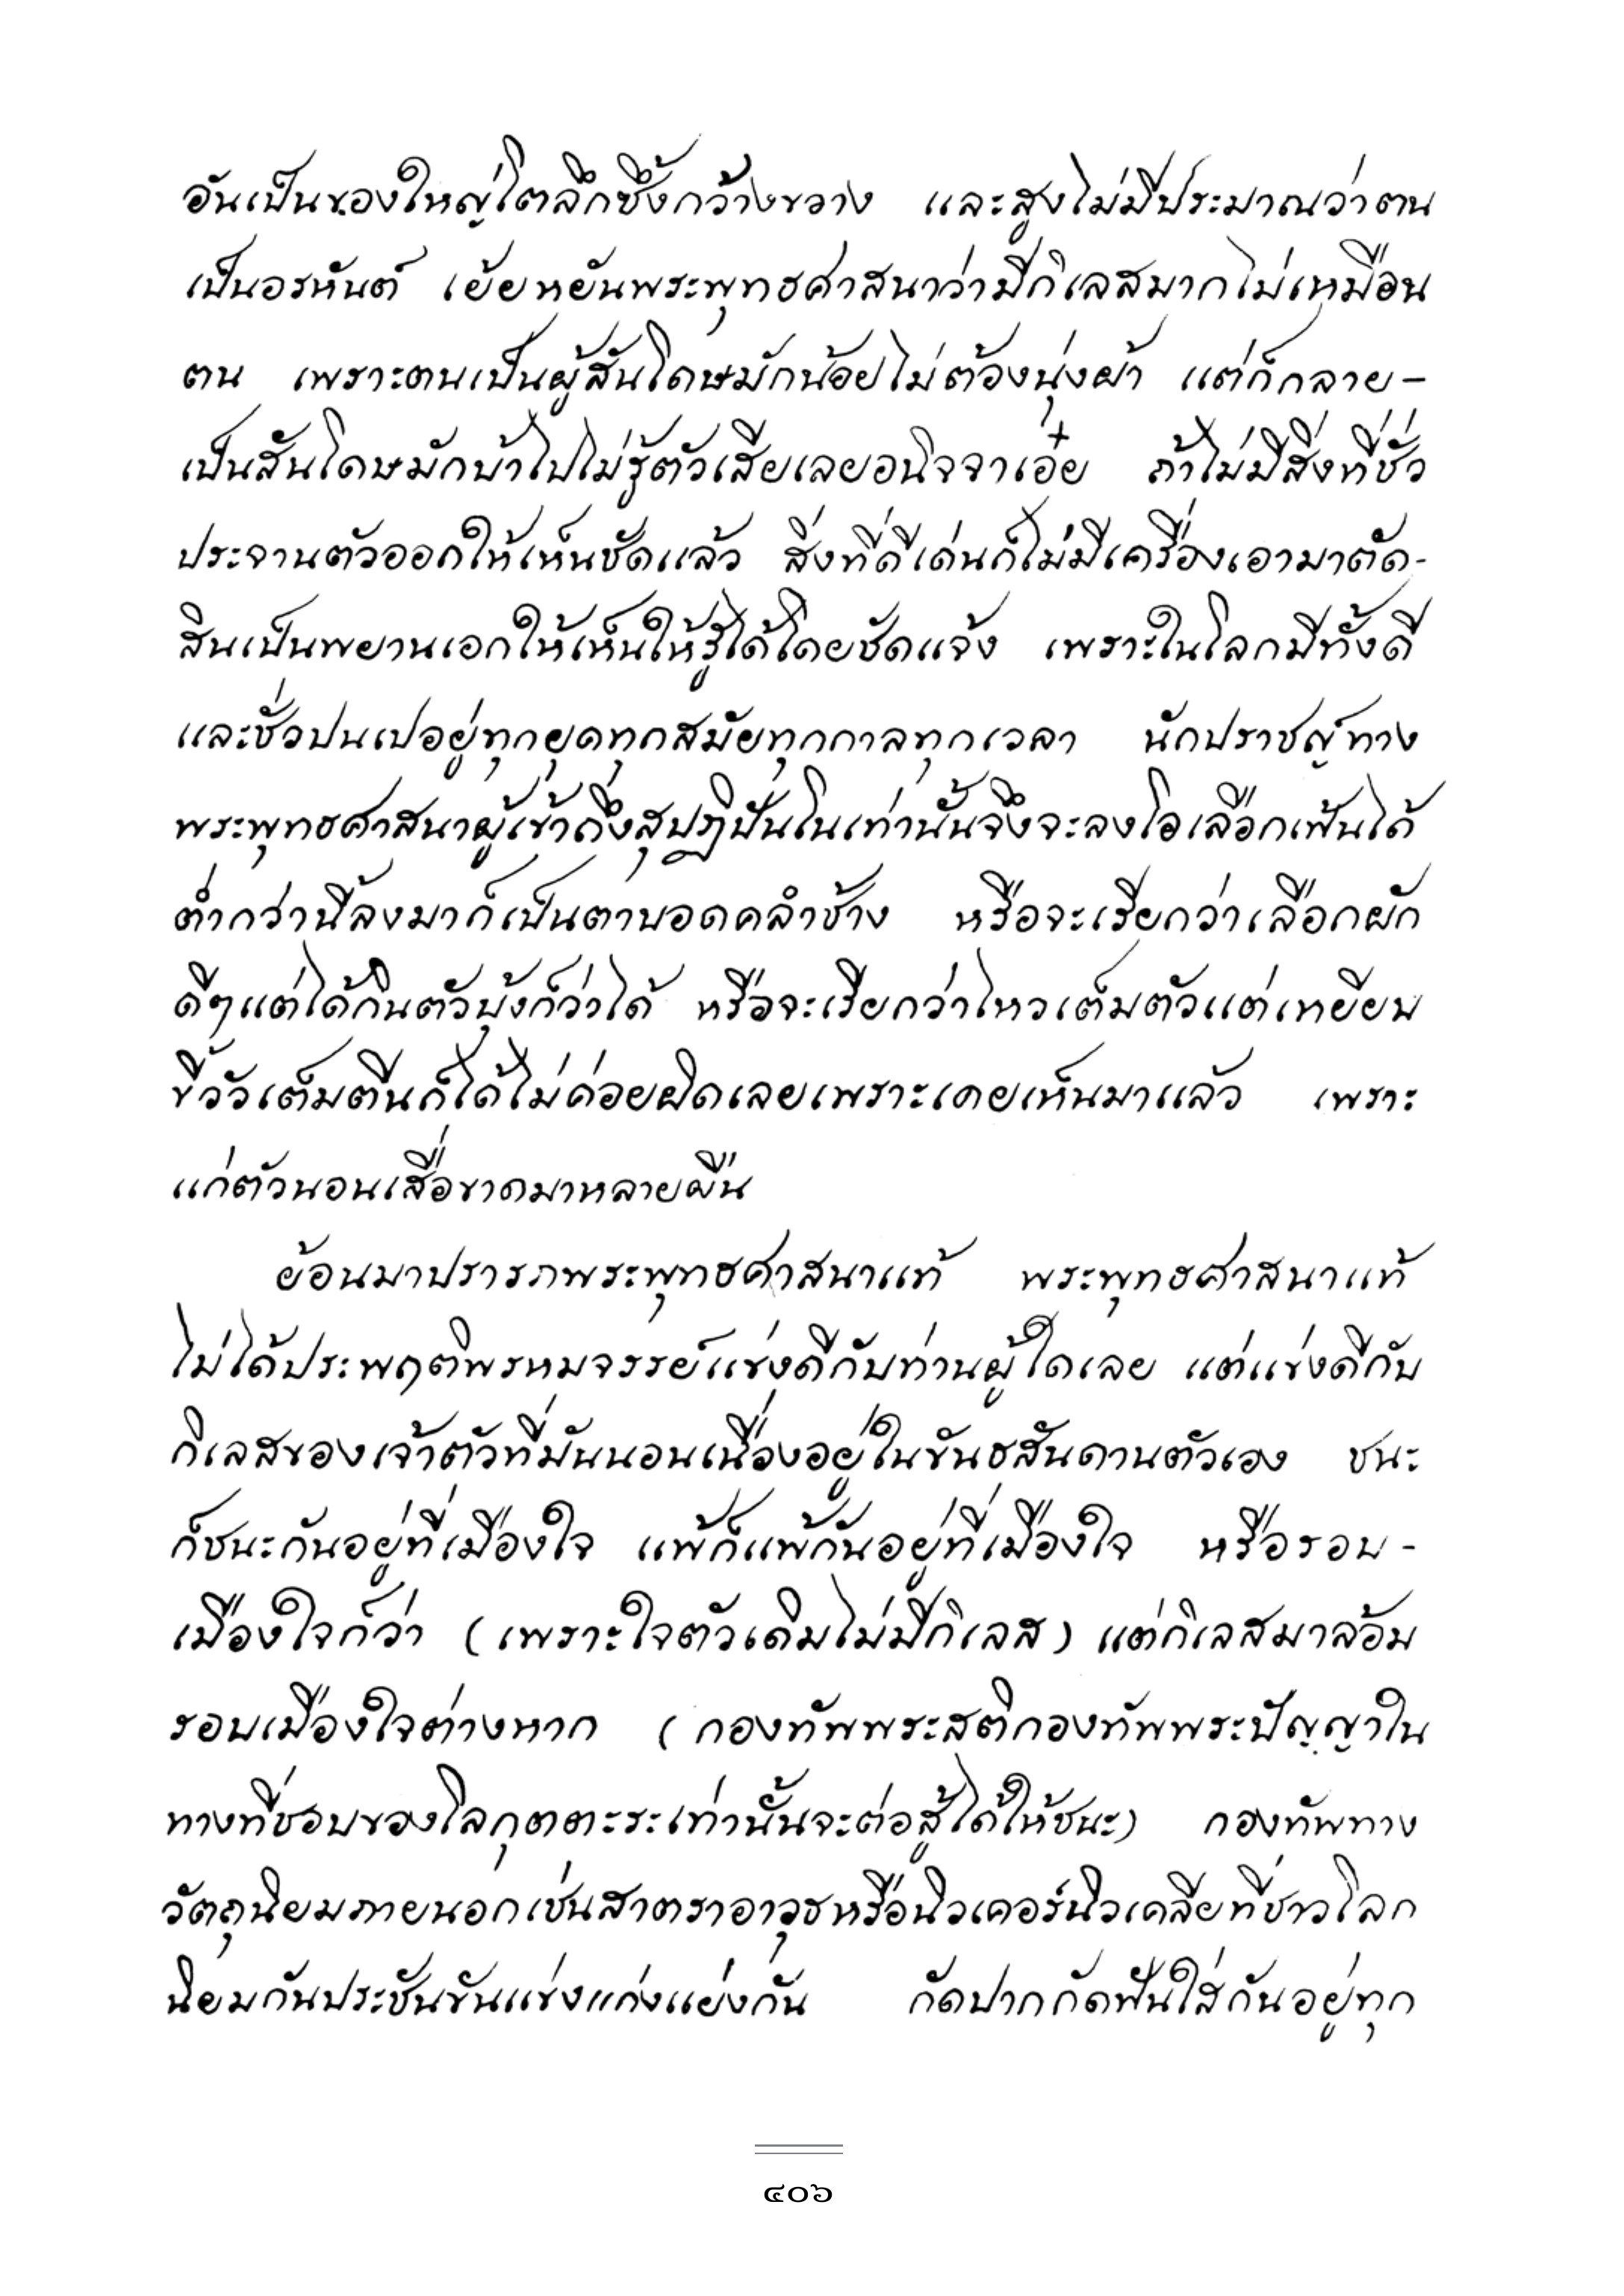 อันเป็นของใหญ่โตลึกซึ้งกว้างขวาง และสูงไม่มีประมาณว่าตน
เป็นอรหันต์ เย้ยหยันพระพุทธศาสนาว่ามีกิเลสมากไม่เหมือน
ตน เพราะตนเป็นผู้สันโดษมักน้อยไม่ต้องนุ่งผ้า แต่ก็กลาย-
เป็นสันโดษมักบ้าไปไม่รู้ตัวเสียเลยอนิจจาเอ๋ย ถ้าไม่มีสิ่งที่ชั่ว
ประจานตัวออกให้เห็นชัดแล้ว สิ่งที่ดีเด่นก็ไม่มีเครื่องเอามาตัด-
สินเป็นพยานเอกให้เห็นให้รู้ได้โดยชัดแจ้ง เพราะในโลกมีทั้งดี
และชั่วปนเปอยู่ทุกยุคทุกสมัยทุกกาลทุกเวลา นักปราชญ์ทาง
พระพุทธศาสนาผู้เข้าถึงสุปฏิปันโนเท่านั้นจึงจะลงโอเลือกเฟ้นได้
ต่ำกว่านี้ลงมาก็เป็นตาบอดคลำช้าง หรือจะเรียกว่าเลือกผัก
ดีๆแต่ได้กินตัวบุ้งก็ว่าได้ หรือจะเรียกว่าไหวเต็มตัวแต่เหยียบ
ขี้วัวเต็มตีนก็ได้ไม่ค่อยผิดเลยเพราะเคยเห็นมาแล้ว เพราะ
แก่ตัวนอนเสื่อขาดมาหลายผืน
ย้อนมาปรารภพระพุทธศาสนาแท้ พระพุทธศาสนาแท้
ไม่ได้ประพฤติพรหมจรรย์แข่งดีกับท่านผู้ใดเลย แต่แข่งดีกับ
กิเลสของเจ้าตัวที่มันนอนเนื่องอยู่ในขันธสันดานตัวเอง ชนะ
ก็ชนะกันอยู่ที่เมืองใจ แพ้ก็แพ้กันอยู่ที่เมืองใจ หรือรอบ-
เมืองใจก็ว่า (เพราะใจตัวเดิมไม่มีกิเลส) แต่กิเลสมาล้อม
รอบเมืองใจต่างหาก (กองทัพพระสติกองทัพพระปัญญาใน
ทางที่ชอบของโลกุตตะระเท่านั้นจะต่อสู้ได้ให้ชนะ) กองทัพทาง
วัตถุนิยมภายนอกเช่นสาตราอาวุธหรือนิวเคอร์นิวเคลียที่ชาวโลก
นิยมกันประชันขันแข่งแก่งแย่งกัน กัดปากกัดฟันใส่กันอยู่ทุก
๔๐๖